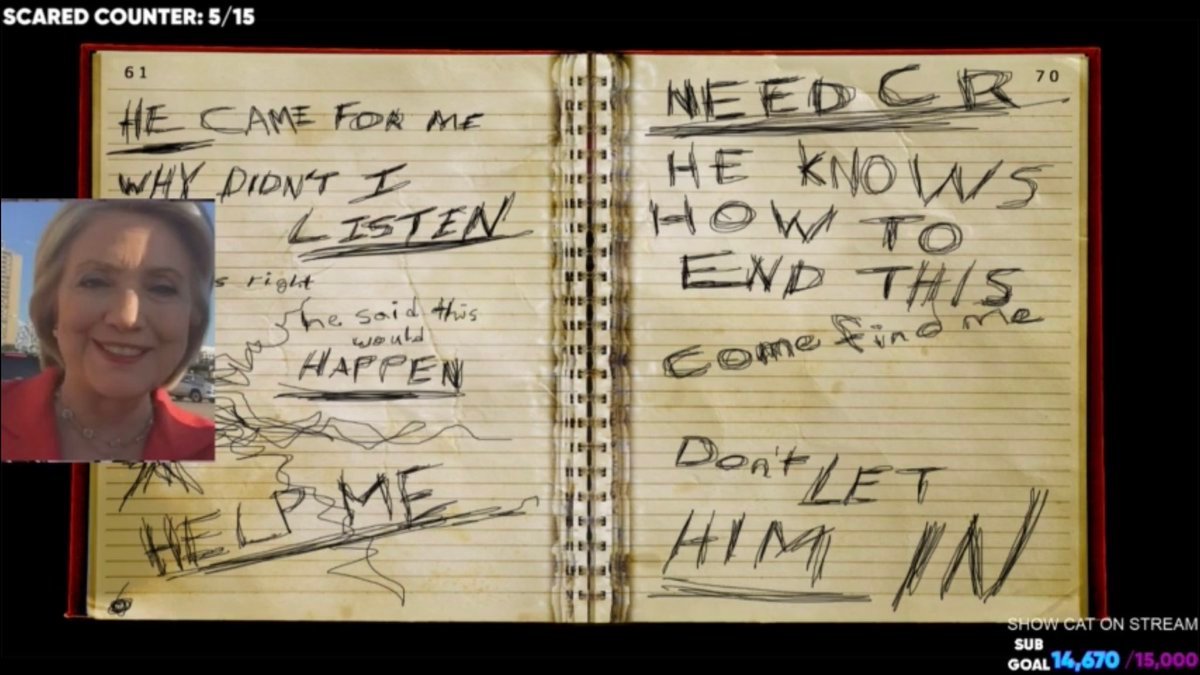 SCARED COUNTER: 5/15
61
HE CAME FOR ME
WHY DIDN'T I
LISTEN
s right
he said this
would
HAPPEN
HELP ME
70
NEED CR
HE KNOWS
HOW TO
END THIS
come find me
Don't LET
HIM IN
SHOW CAT ON STREAM
SUB
GOAL 14,670 /15,000